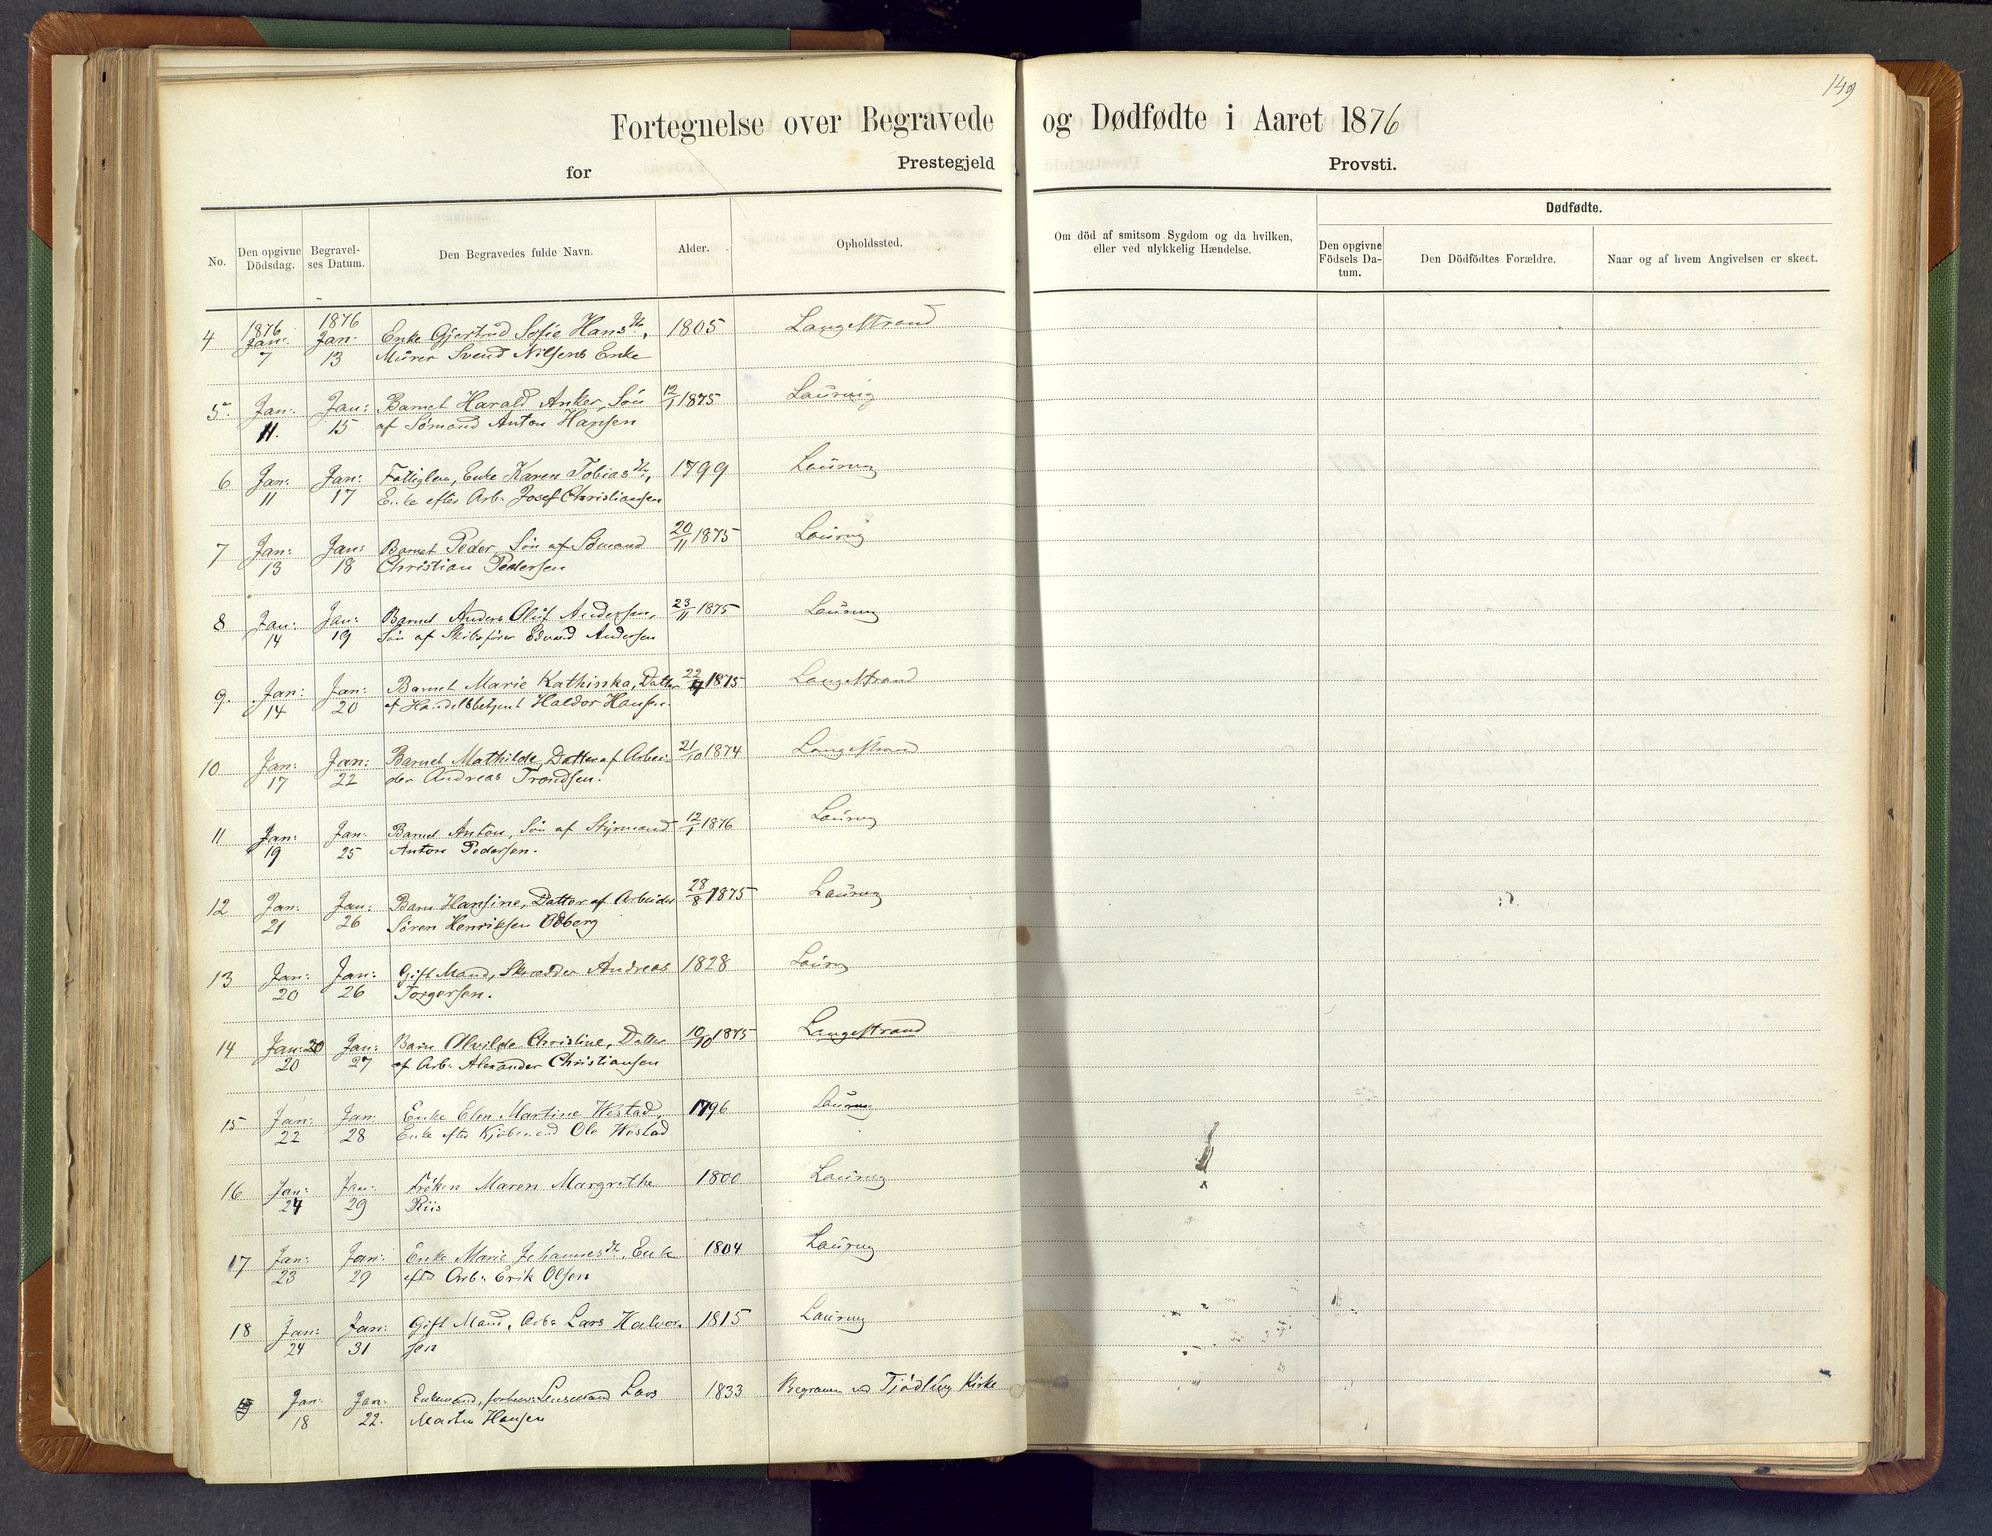 149
Fortegnelse over Begravede og Dødfødte i Aaret 1876
for Prestegjeld Provsti.
No. Den opgivne Dödsdag. Begravel-ses Datum. Den Begravedes fulde Navn. Alder. Opholdssted. Om död af smitsom Sygdom og da hvilken, eller ved ulykkelig Hændelse. Dødfødte. Den opgivne Födsels Da-tum. Den Dödfödtes Forældre. Naar og af hvem Angivelsen er skeet.
4 1876 Jan: 1876 Jan. Enke Gjertrud Sofie Hansdtr, 1805 Langestrand
7 13 Murer Svend Nilsens Enke
5 Jan: Jan: Barnet Harald Anker, Søn 12/1 1875 Laurvig
11. 15 af Sømand Anton Hansen
6 Jan: Jan: Fattiglem, Enke Karen Tobiasdtr, 1799 Laurvig
11 17 Enke efter Arb: Josef Christiansen
7 Jan: Jan: Barnet Peder, Søn af Sømand 20/11 1875 Laurvig
13 18 Christian Pedersen
8 Jan: Jan: Barnet Anders Oluf Andersen, 23/11 1875 Laurvig
14 19 Søn af Skibsfører Edvard Andersen
9. Jan: Jan: Barnet Marie Kathinka, Datter 22/ 1875 Langestrand
14 20 af Handelsbetjent Haldor Hansen.
10 Jan: Jan: Barnet Mathilde, Datter af Arbei- 21/10 1874 Langestrand
17 22 der Andreas Trondsen.
11 Jan: Jan. Barnet Anton, Søn af Styrmand 12/1 1876 Laurvig
19 25 Anton Pedersen.
12 Jan: Jan: Barn Hansine, Datter af Arbeider 28/8 1875 Laurvig
21 26 Søren Henriksen Odberg
13 Jan: Jan: Gift Mand, Skrædder Andreas 1828 Laurvig
20 26 Torgersen.
14 Jan: 20 Jan: Barn Alvilde Christine, Datter 10/10 1875 Langestrand
20 27 af Arb: Alexander Christiansen
15 Jan: Jan: Enke Elen Martine Hestad, 1796 Laurvig
22 28 Enke efter Kjøbmand Ole Hestad
16 Jan: Jan: Frøken Maren Margrethe 1800 Laurvig
24 29 Riis
17 Jan: Jan: Enke Marie Johannesdtr, Enke 1804 Laurvig
23 29 efter Arb: Erik Olsen
18 Jan: Jan: Gift Mand, Arb: Lars Halvor- 1815 Laurvig
24 31 sen
Jan. Jan. Enkemand, forhen: Lensmand Lars 1833 Begraven ved Tjødling Kirke
18 22. Martin Hansen